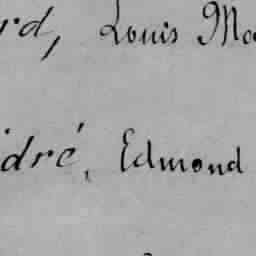 rd, Louis Ma
dré, Edmond